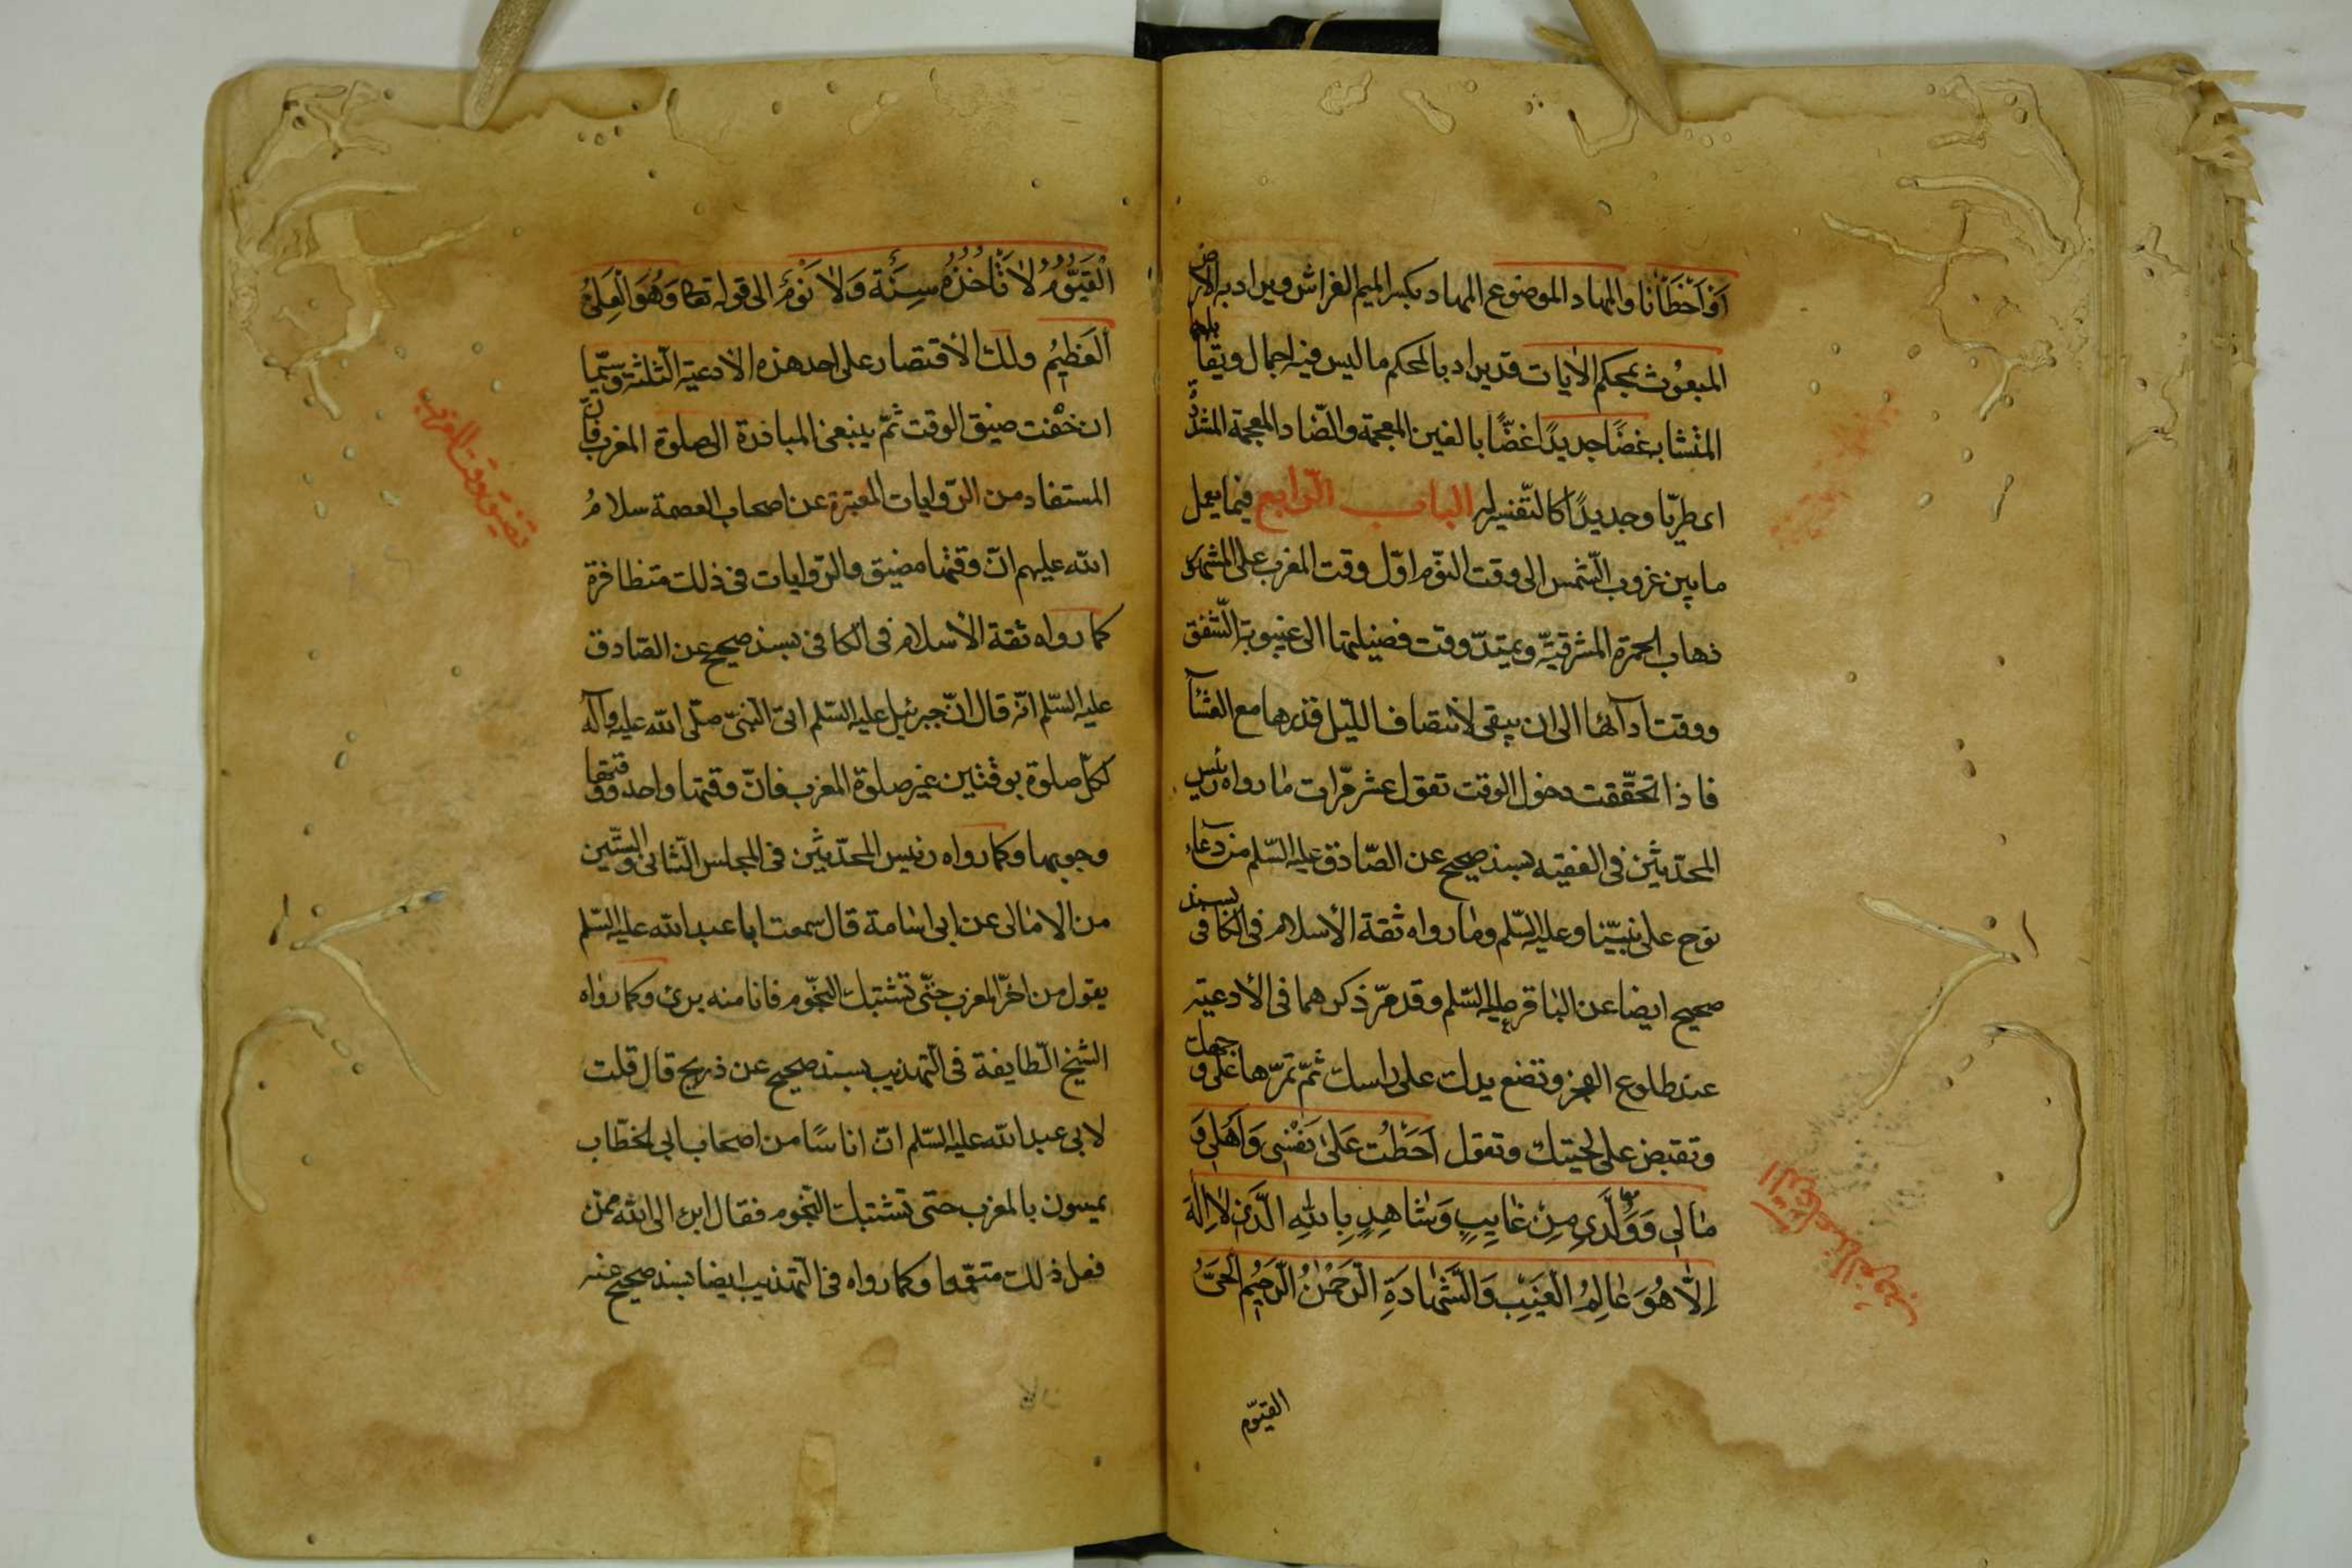 اَوْ اَخْطَانَا والمهاد الموضوع المهاد بكسر الميم الفراش ويراد به الارض
المبعوث بمحكم الايات قد يراد بالمحكم ما ليس فيه اجمال ويقابله
المتشابه غضًا جديدًا غضًّا بالغين المعجمة والضّاد المعجمة المشدّدة
اى طريّا وجديدًا كالتّفسير له الباب الرّابع فيما يعمل
ما بين غروب الشّمس الى وقت النّوم اوّل وقت المغرب على المشهور
ذهاب الحمرة المشرقيّة ويمتدّ وقت فضيلتها الى غيبوبة الشّفق
ووقت ادآئها الى ان يبقى لانتصاف اللّيل قدرها مع العشآء
فاذا تحقّقت دخول الوقت تقول عشر مرّات ما رواه رئيس
المحدّثين فى الفقيه بسند صحيح عن الصّادق عليه السّلم من دعاء
نوح على نبيّنا وعليه السّلم وما رواه ثقة الأسلام فى الكافى بسند
صحيح ايضا عن الباقر عليه السّلم وقد مرّ ذكرهما فى الأدعية
عند طلوع الفجر وتضع يدك على راسك ثمّ تمرّها على وجهك
وتقبض على لحيتك وتقول اَحَطْتُ عَلىٰ نَفْسِى وَاَهْلِى وَ
مٰالِى وَوُلْدِى مِنْ غٰايِبٍ وَشٰاهِدٍ بِاللهِ الَّذِى لٰا اِلٰهَ
اِلّٰا هُوَ عٰالِمُ الْغَيْبِ وَالشَّهٰادَةِ الرَّحْمٰنُ الرَّحِيمُ الْحَىُّ
القيّوم
الْقَيُّومُ لاٰ تَأخُذُهُ سِنَةٌ وَلاٰ نَوْمٌ الى قوله تعالى وَهُوَ الْعَلِىُّ
الْعَظِيمُ ولك الأقتصار على احد هذه الأدعية الثّلثة وسيّما
ان خفت ضيق الوقت ثمّ ينبغى المبادرة الى صلوة المغرب فانّ
المستفاد من الرّوايات المعتبرة عن اصحاب العصمة سلامُ
الله عليهم انّ وقتها مضيق والرّوايات فى ذلك متظافرة
كما رواه ثقة الأسلام فى الكافى بسند صحيح عن الصّادق
عليه السّلم انّه قال انّ جبرئيل عليه السّلم اتى النّبىّ صلّى الله عليه وآله
لكلّ صلوة بوقتين غير صلوة المغرب فانّ وقتها واحد ووقتها
وجوبها وكما رواه رئيس المحدّثين فى المجلس الثّانى والستّين
من الامالى عن ابى اسامة قال سمعت ابا عبد الله عليه السّلم
يقول من اخّر المغرب حتّى تشتبك النّجوم فانا منه برئ وكما رواه
الشيخ الطّايفة فى التّهذيب بسند صحيح عن ذريح قال قلت
لابى عبد الله عليه السّلم انّ اناسًا من اصحاب ابى الخطّاب
يمسون بالمغرب حتى تشتبك النّجوم فقال ابرء الى الله ممّن
فعل ذلك متعمّدا وكما رواه فى التّهذيب ايضا بسند صحيح عنه
تضيق وقت المغرب